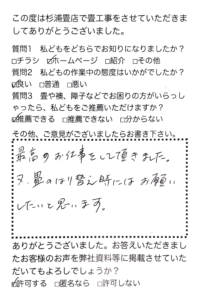 この度は杉浦畳店で畳工事をさせていただきま
してありがとうございました。
質問1 私どもをどちらでお知りになりましたか？
□チラシ ☑ホームページ □紹介 □その他
質問2 私どもの作業中の態度はいかがでしたか？
☑良い □普通 □悪い
質問3 畳や襖、障子などでお困りの方がいらっし
ゃったら、私どもをご推薦いただけますか？
☑推薦できる □推薦できない □分からない
その他、ご意見がございましたらお書き下さい。
最高のお仕事をして頂きました。
又、畳のはり替え時にはお願い
したいと思います。
ありがとうございました。お答えいただきまし
たお客様のお声を弊社資料等に掲載させていた
だいてもよろしでしょうか？
☑許可する □匿名なら □許可しない